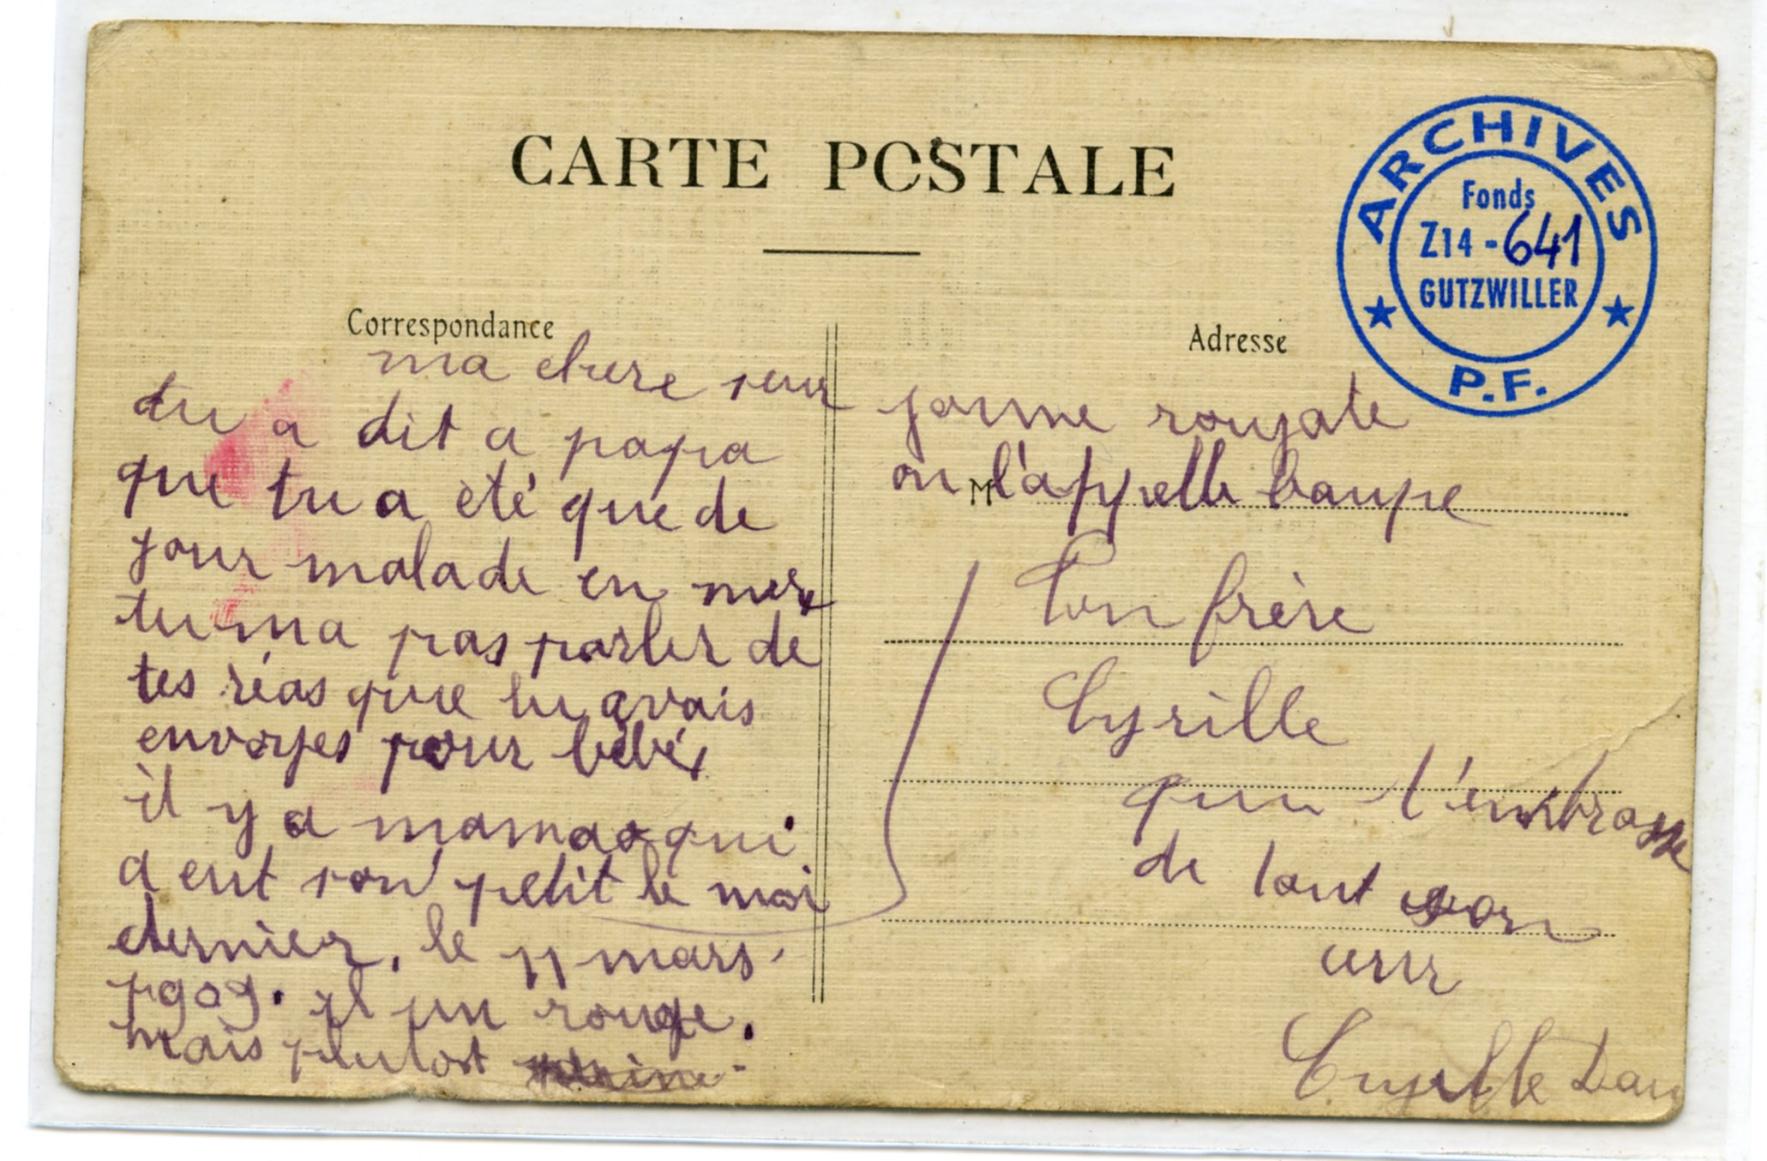 CARTE POSTALE
ARCHIVES
Fonds
Z14 - 641
GUTZWILLER
P.F.
Correspondance
ma chere seur
tu a dit a papa
que tu a été que de
jour malade en mere
tu ma pas parler de
tes réas que tu avais
envoyes pour bébés
il y a maman qui
a eut son petit le moi
dernier. le 11 mars
1909. il un rouge.
mais plutost
Adresse
jaune roujate
M
on l'appelle baupe
Ton frère
Cyrille
qui t'embrasse
de tout son
ceur
Cyrille Dau